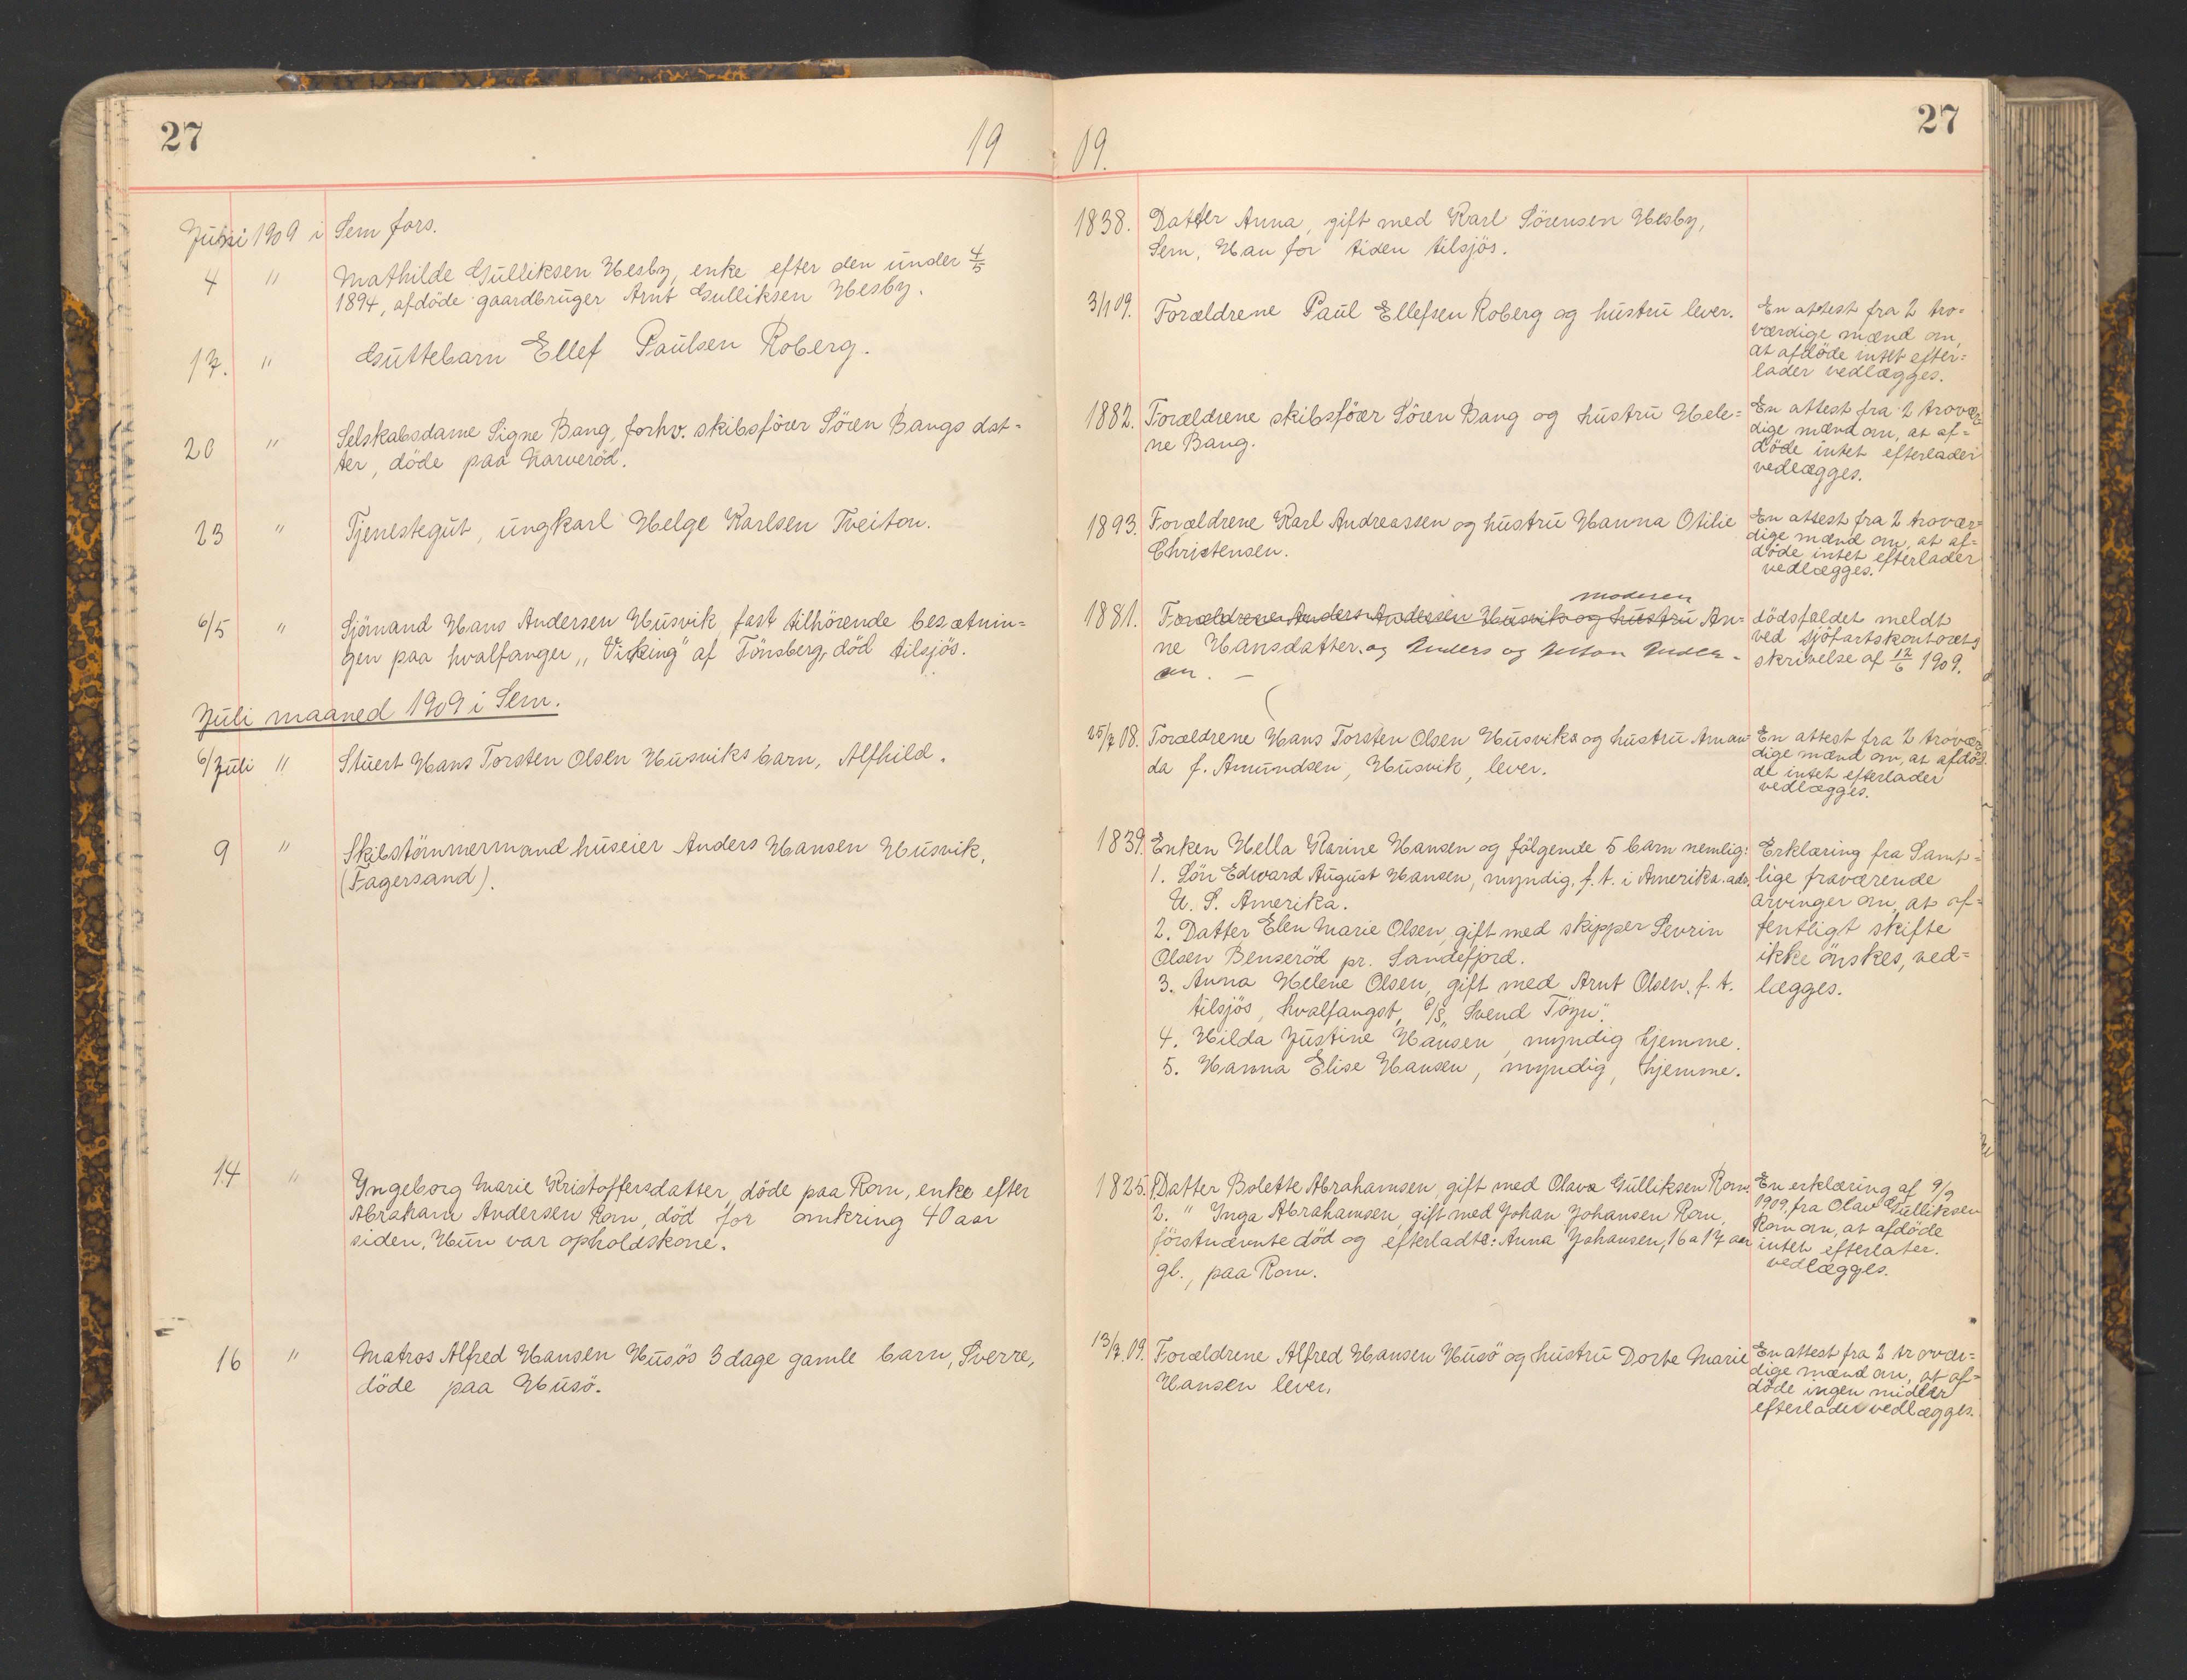 27
19
Juni 1909 i Sem fors.
4 " Mathilde Gulliksen Hesby, enke efter den under 4/5
1894, afdöde gaardbruger Arnt Gulliksen Hesby.
17. " Guttebarn Ellef Paulsen Roberg.
20 " Selskabsdame Signe Bang, forhv. skibsförer Sören Bangs dat=
ter, döde paa Narveröd.
23 " Tjenestegut, ungkarl Helge Karlsen Tveiton.
6/5 " Sjömand Hans Andersen Husvik fast tilhörende besætnin=
gen paa hvalfanger „Viking" af Tönsberg, död tilsjös.
Juli maaned 1909 i Sem.
6/Juli " Stuert Hans Torsten Olsen Husviks barn, Alfhild.
9 " Skibstömmermand huseier Anders Hansen Husvik,
(Fagersand).
14 " Yngeborg Marie Kristoffersdatter, döde paa Rom, enke efter
Abraham Andersen Rom, död for omkring 40 aar
siden. Hun var opholdskone.
16 " Matros Alfred Hansen Husös 3 dage gamle barn, Sverre,
döde paa Husö.
27
09.
1838. Datter Anna, gift med Karl Sörensen Hesby,
Sem, Han for tiden tilsjös.
3/1 09. Forældrene Paul Ellefsen Roberg og hustru lever.
En attest fra 2 tro=
værdige mænd om,
at afdöde intet efter=
lader vedlægges.
1882. Forældrene skibsförer Sören Bang og hustru Hele=
ne Bang.
En attest fra 2 trovær=
dige mænd om, at af=
döde intet efterlader
vedlægges.
1893. Forældrene Karl Andreassen og hustru Hanna Otilie
Christensen.
En attest fra 2 trovær=
dige mænd om, at af=
döde intet efterlader
vedlægges.
moderen
1881. Forældrene Anders Andersen Husvik og hustru An=
ne Hansdatter. og Anders og Anton Anders=
en. –
dödsfaldet meldt
ved sjöfartskontorets
skrivelse af 12/6 1909.
25/7 08. Forældrene Hans Torsten Olsen Husviks og hustru Aman=
da f. Amundsen, Husvik, lever.
En attest fra 2 trovær=
dige mænd om, at afdö=
de intet efterlader
vedlægges.
1839. Enken Hella Karine Hansen og fölgende 5 barn nemlig:
1. Sön Edward August Hansen, myndig, f. t. i Amerika. ads.
U. S. Amerika.
2. Datter Elen Marie Olsen, gift med skipper Sevrin
Olsen Benseröd pr. Sandefjord.
3. Anna Helene Olsen, gift med Arnt Olsen, f. t.
tilsjös, hvalfangst, „Svend Föyn".
4. Hilda Justine Hansen, myndig hjemme.
5. Hanna Elise Hansen, myndig, hjemme.
Erklæring fra Samt=
lige fraværende
arvinger om, at of=
fentligt skifte
ikke önskes, ved=
lægges.
1825. Datter Bolette Abrahamsen, gift med Olava Gulliksen Rom.
2. " Inga Abrahamsen, gift med Johan Johansen Rom,
förstnævnte död og efterladte: Anna Johansen, 16 a 17 aar
gl., paa Rom.
En erklæring af 9/9
1909, fra Olav Gulliksen
Rom om, at afdöde
intet efterlater.
vedlægges.
13/7.09. Forældrene Alfred Hansen Husö og hustru Dorte Marie
Hansen lever,
En attest fra 2 trovær=
dige mænd om, at af=
döde ingen midler
efterlader vedlægges.